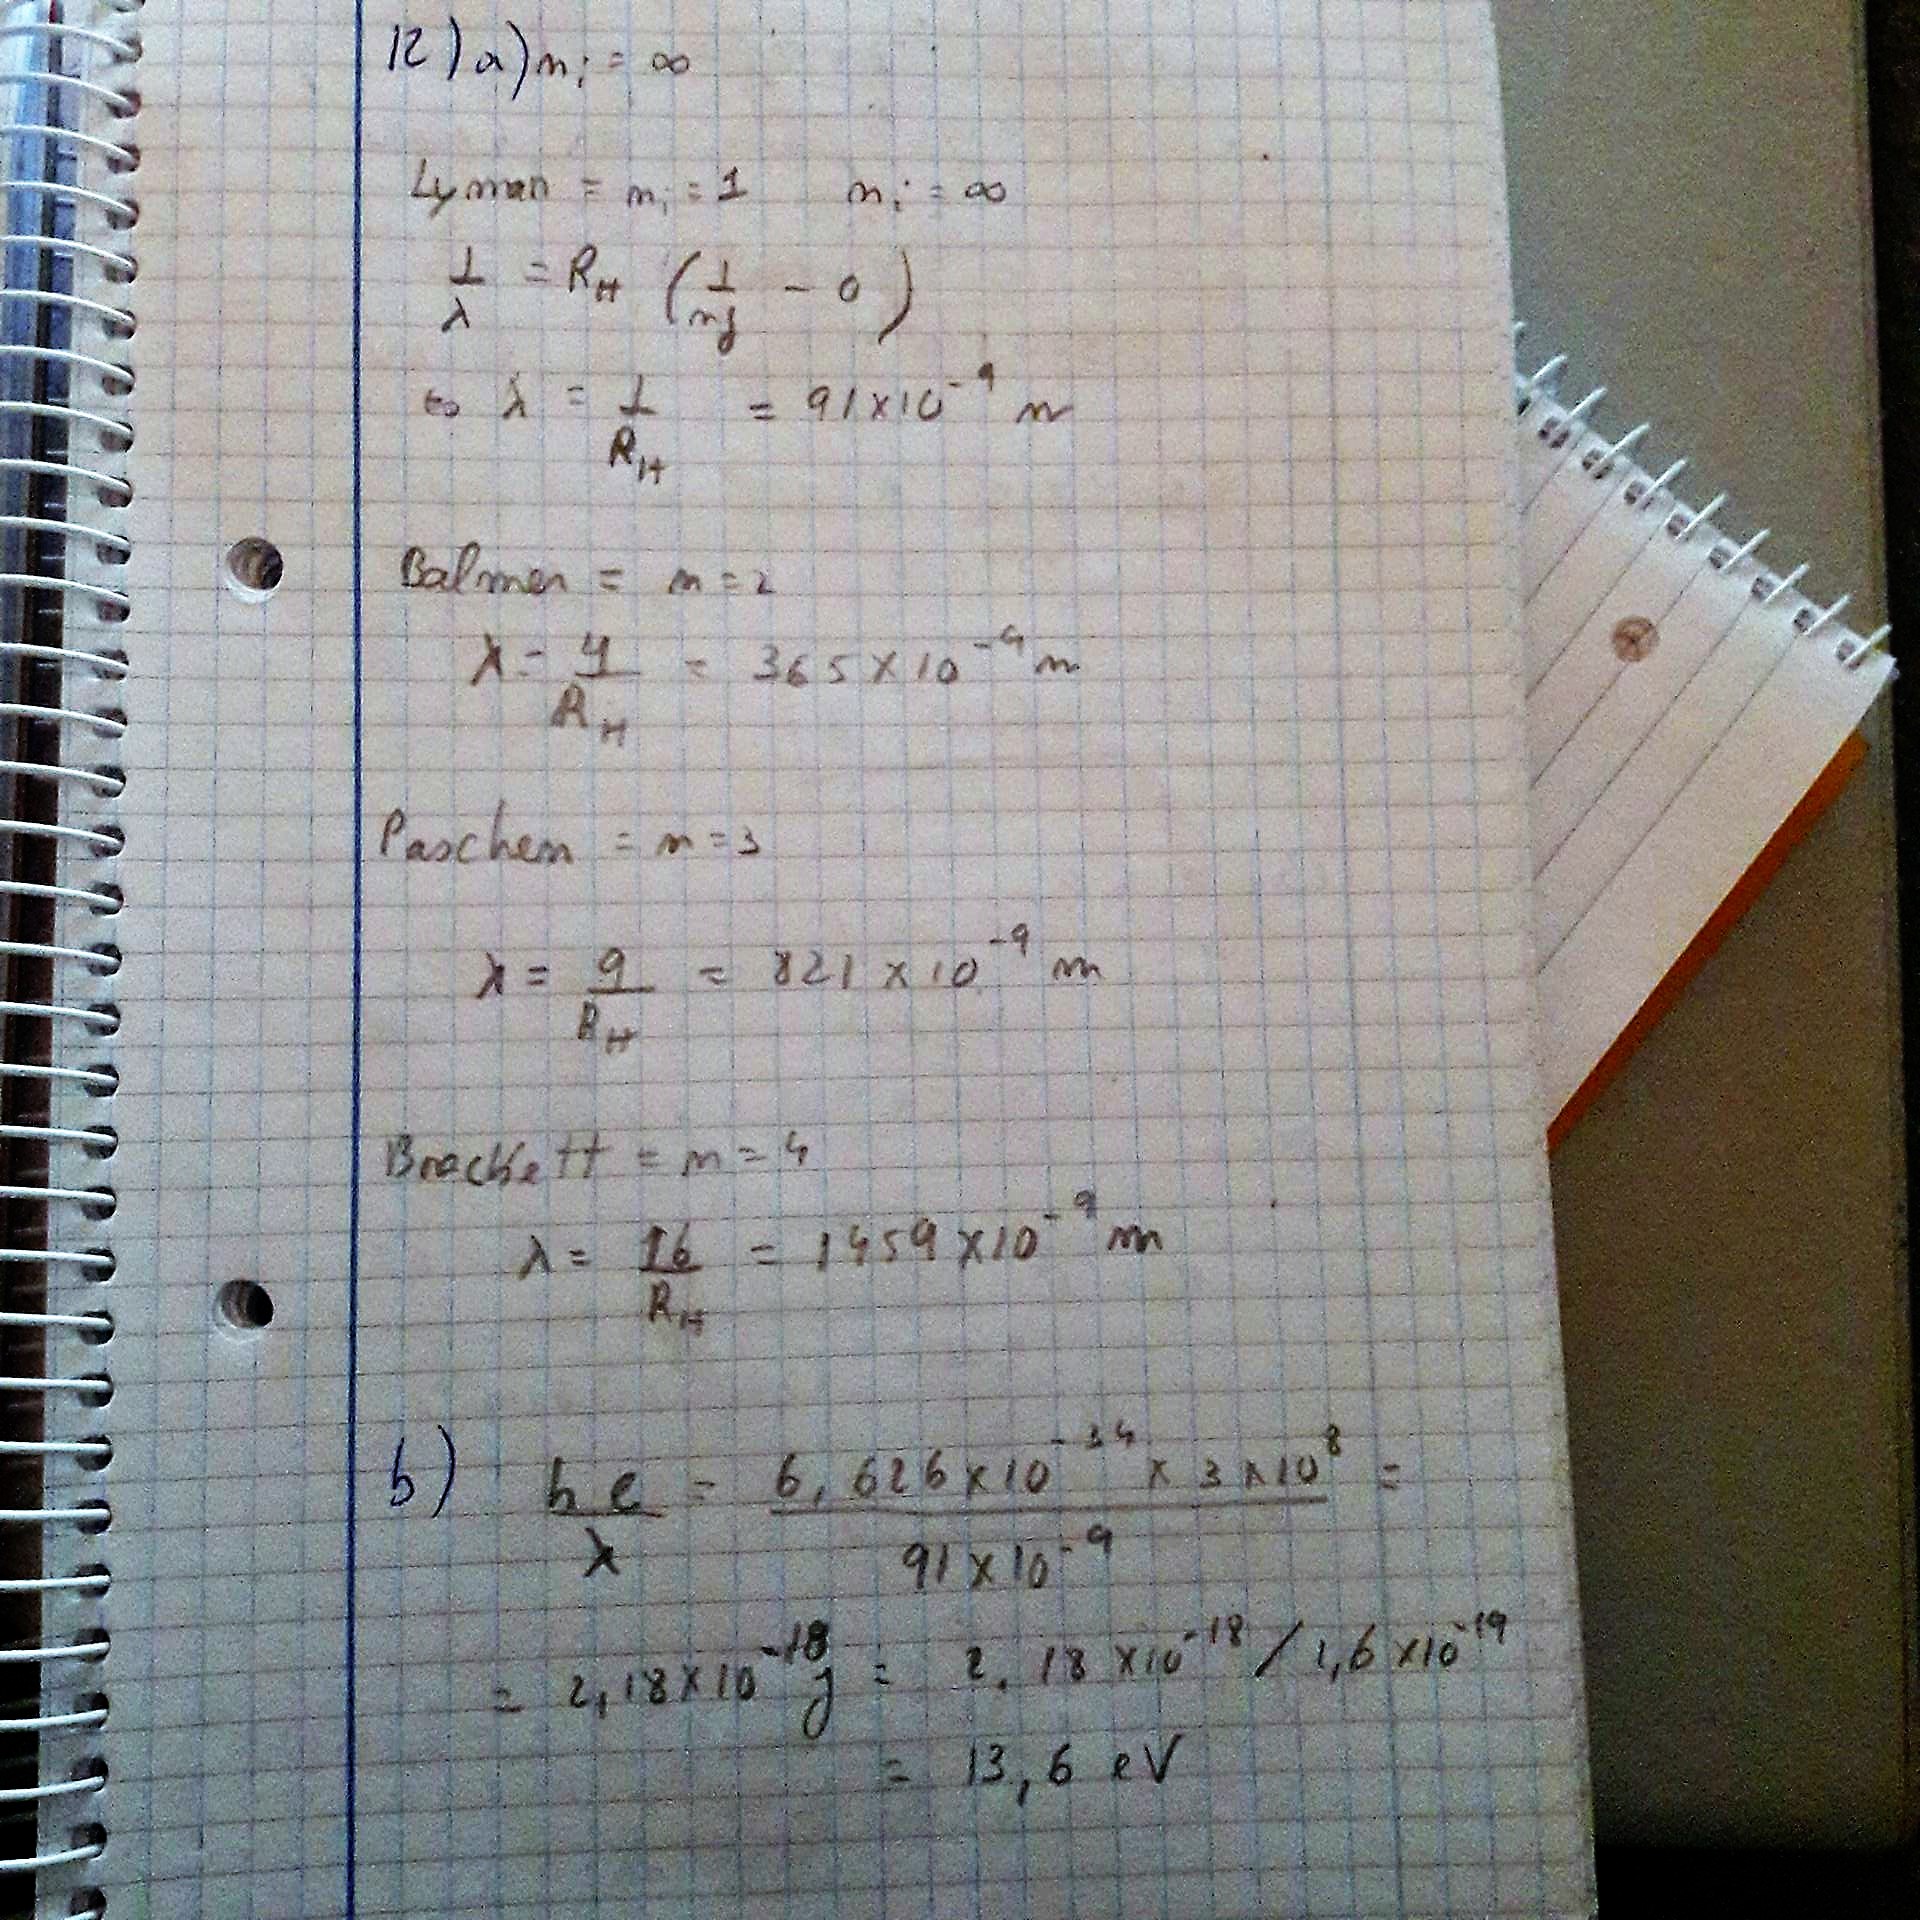 12) a) n i = ∞
Lyman = n i = 1 n i = ∞
1/λ = R_H (1/nf - 0)
⇔ λ = 1/R_H = 91 x 10^-9 m
Balmer = n = 2
λ = 4/R_H = 365 x 10^-9 m
Paschen = n = 3
λ = 9/R_H = 821 x 10^-9 m
Brackett = n = 4
λ = 16/R_H = 1459 x 10^-9 m
b) hc/λ = 6,626 x 10^-34 x 3 x 10^8 / 91 x 10^-9 =
= 2,18 x 10^-18 J = 2,18 x 10^-18 / 1,6 x 10^-19
= 13,6 eV